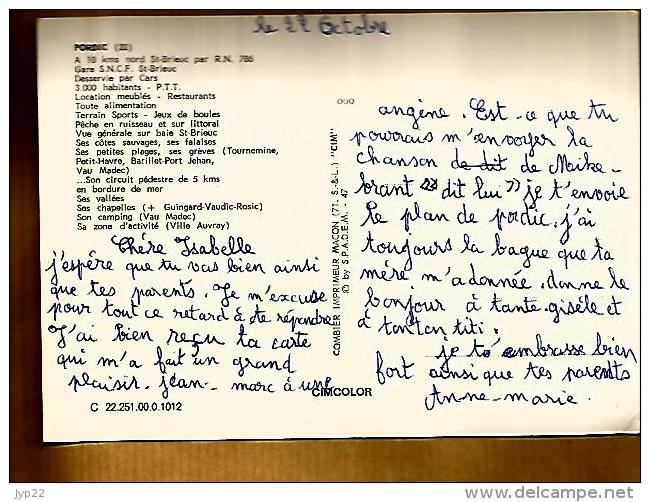 le 22 Octobre
PORDIC (22)
A 10 kms nord St-Brieuc par R.N. 786
Gare S.N.C.F. St-Brieuc
Desservie par Cars
3.000 habitants - P.T.T.
Location meublés - Restaurants
Toute alimentation
Terrain Sports - Jeux de boules
Pêche en ruisseau et sur littoral
Vue générale sur baie St-Brieuc
Ses côtes sauvages, ses falaises
Ses petites plages, ses grèves (Tournemine,
Petit-Havre, Barillet-Port Jehan,
Vau Madec)
...Son circuit pédestre de 5 kms
en bordure de mer
Ses vallées
Ses chapelles (+ Guingard-Vaudic-Rosic)
Son camping (Vau Madec)
Sa zone d'activité (Ville Auvray)
Chère Isabelle
j'espére que tu vas bien ainsi
que tes parents. Je m'excuse
pour tout ce retard à te répondre
J'ai bien reçu ta carte
qui m'a fait un grand
plaisir. jean-marc à une
C 22.251.00.0.1012
COMBIER IMPRIMEUR MACON (71. S.-&-L.) "CIM"
© by S.P.A.D.E.M. - 47
CIMCOLOR
angine. Est-ce que tu
pourrais m'envoyer la
chanson de dit de Maike
brant "dit lui" je t'envoie
le plan de pordic. j'ai
toujours la bague que ta
mère m'a donnee. donne le
bonjour à tante gisèle et
à tonton titi.
je t'embrasse bien
fort ainsi que tes parents
Anne-marie.
jyp22
www.delcampe.net